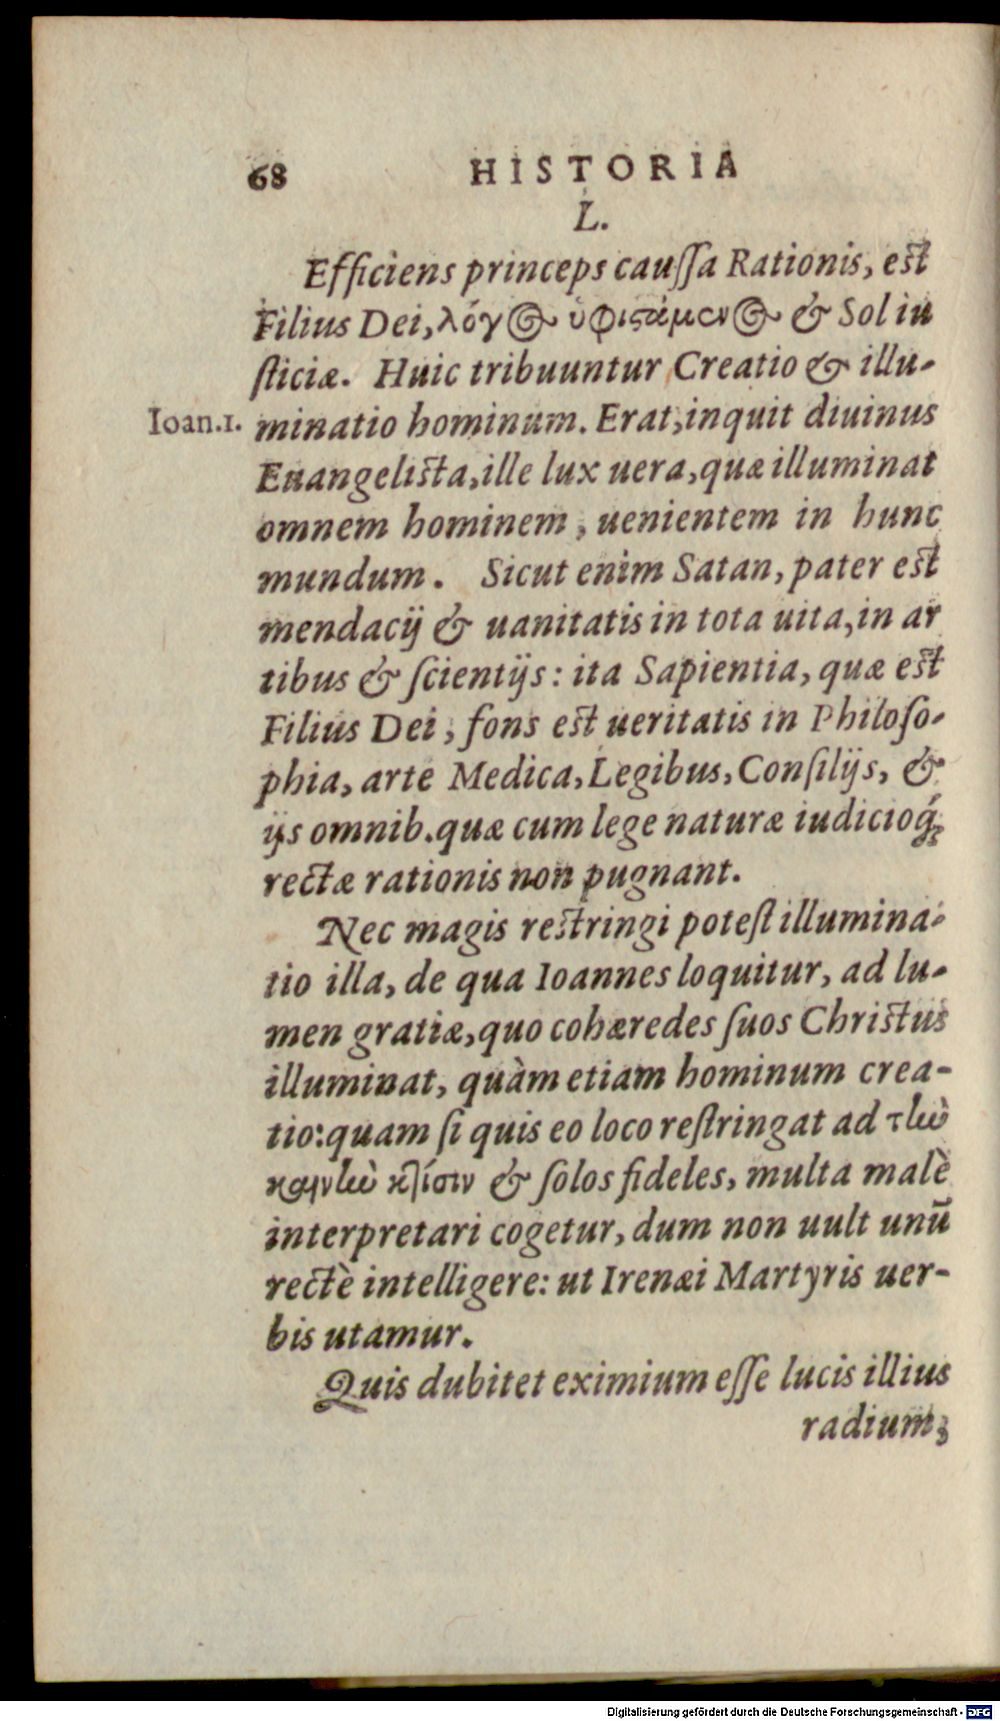 68 HISTORIA
L.
Efficiens princeps caussa Rationis, est
Filius Dei, λόγος ὑφιστάμενος & Sol iu
sticiæ. Huic tribuuntur Creatio & illu-
Ioan.1. minatio hominum. Erat, inquit diuinus
Euangelista, ille lux uera, quæ illuminat
omnem hominem, uenientem in hunc
mundum. Sicut enim Satan, pater est
mendacij & uanitatis in tota uita, in ar
tibus & scientijs: ita Sapientia, quæ est
Filius Dei, fons est ueritatis in Philoso-
phia, arte Medica, Legibus, Consilijs, &
ijs omnib. quæ cum lege naturæ iudicioq́;
rectæ rationis non pugnant.
Nec magis restringi potest illumina-
tio illa, de qua Ioannes loquitur, ad lu-
men gratiæ, quo cohæredes suos Christus
illuminat, quàm etiam hominum crea-
tio: quam si quis eo loco restringat ad τὴν
καινὴν κτίσιν & solos fideles, multa malè
interpretari cogetur, dum non uult unū
rectè intelligere: ut Irenæi Martyris uer-
bis utamur.
Quis dubitet eximium esse lucis illius
radium,
Digitalisierung gefördert durch die Deutsche Forschungsgemeinschaft - DFG